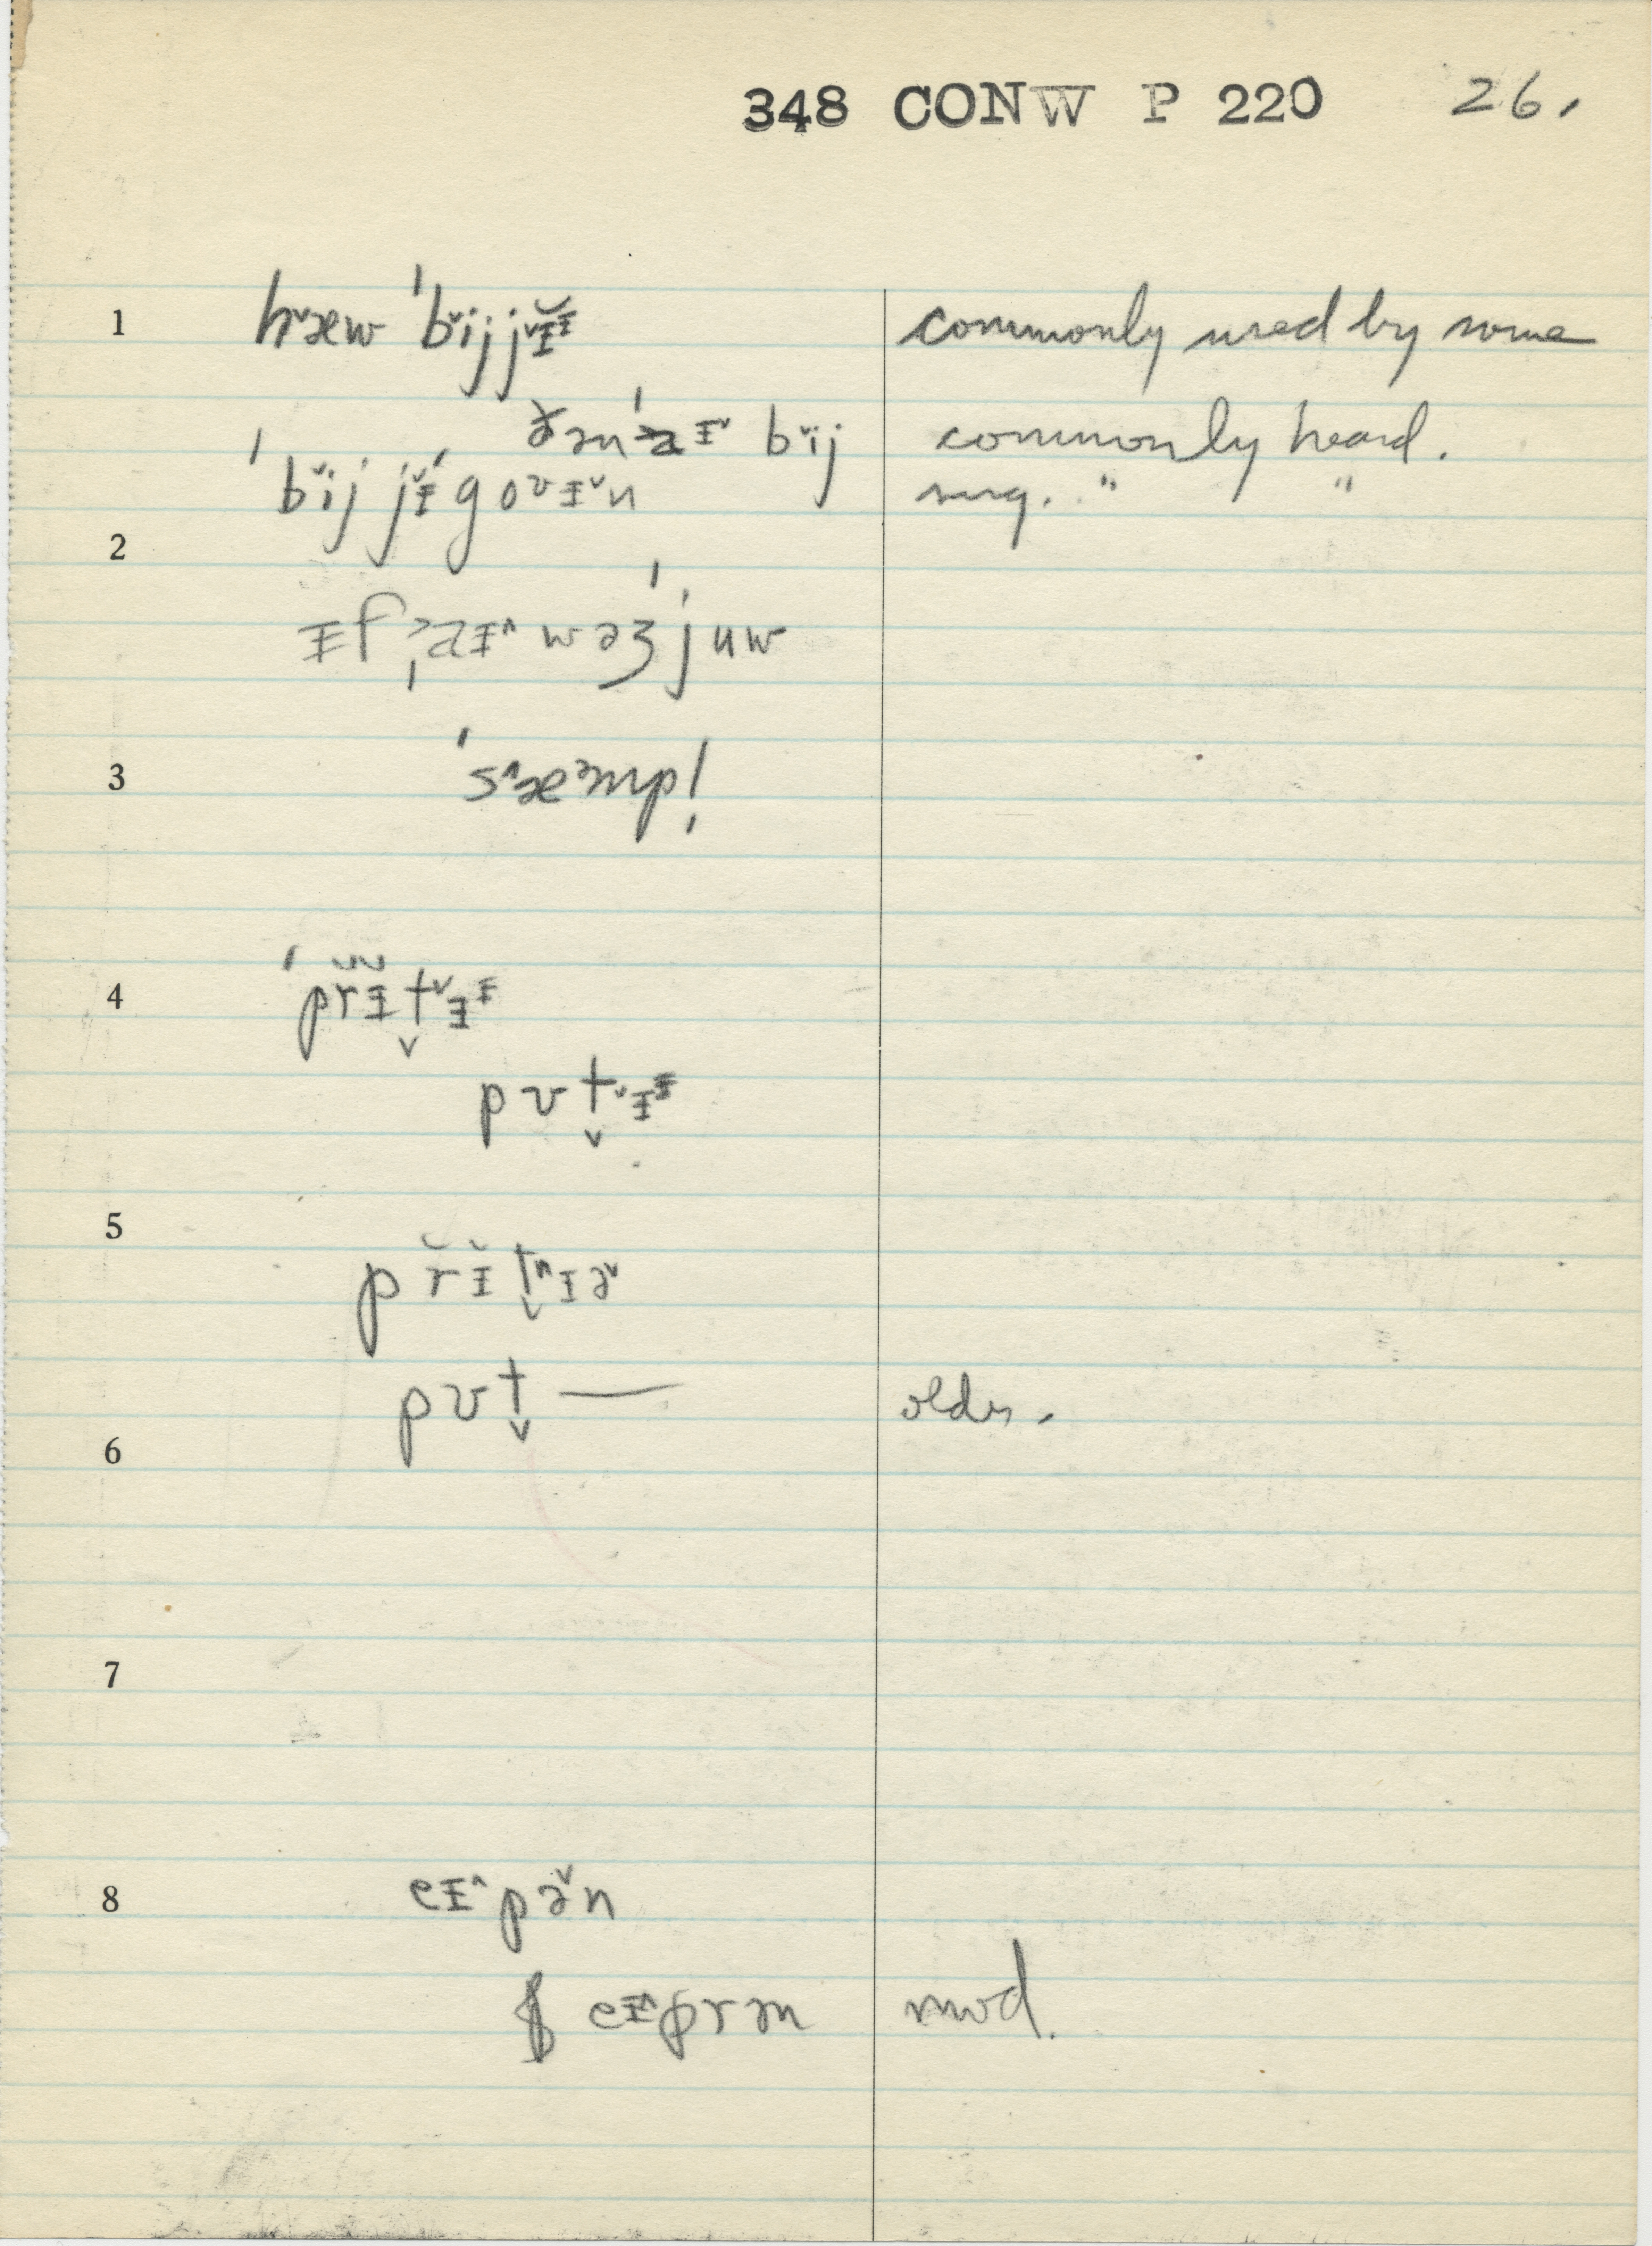 348 CONW P 220 26.
1 hᵛæw ˈbᵛijjᵛɪ̆ᶦ commonly used by some
ðənˈaɪᵛ bᵛij commonly heard.
ˈbᵛij jᵛɪ́goʊɪᵛn sug. " "
2
ɪf ˌaɪ^ wəz ˈjuw
3 ˈs^æᵊmp!
4 ˈpr̆ɪ̆t̬ᵛɪᶦ
pʊt̬ᵛɪᶦ
5
pr̆ɪ̆t̬^ɪəᵛ
pʊt̬ — older.
6
7
8 eɪ^pə̌n
eɪ^prən mod.